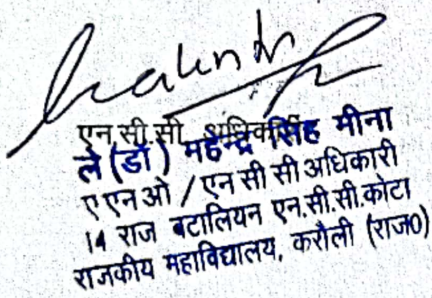 एन सी सी अधिकारी
ले (डॉ) महेन्द्र सिंह मीना
ए एन ओ / एन सी सी अधिकारी
14 राज बटालियन एन.सी.सी.कोटा
राजकीय महाविद्यालय, करौली (राज0)